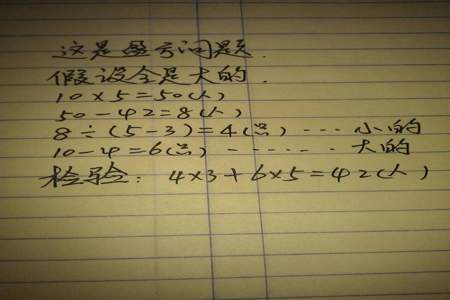 这是盈亏问题.
假设全是大的.
10×5=50(人)
50-42=8(人)
8÷(5-3)=4(only) ··· 小的
10-4=6(只) ······ 大的
检验: 4×3+6×5=42(人)